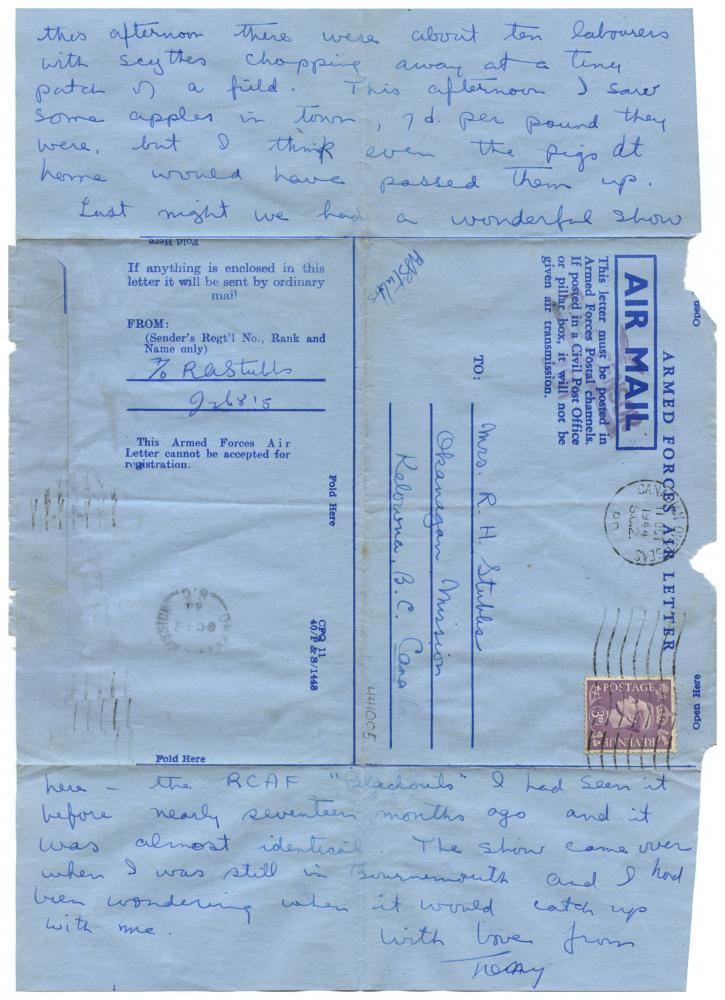 this afternoon there were about ten labourers
with scythes chopping away at a tiny
patch of a field. This afternoon I saw
some apples in town, 7d. per pound they
were, but I think even the pigs at
home would have passed them up.
Last night we had a wonderful show
Fold Here
If anything is enclosed in this
letter it will be sent by ordinary
mail
FROM:
(Sender's Regt'l No., Rank and
Name only)
F/O RAStubbs
This Armed Forces Air
Letter cannot be accepted for
registration.
Fold Here
CPG 11
40/P & S/1448
Fold Here
RAStubbs
ARMED FORCES AIR LETTER
AIR MAIL
This letter must be posted in
Armed Forces Postal channels.
If posted in a Civil Post Office
or pillar box, it will not be
given air transmission.
TO:
Mrs. R. H. Stubbs
Okanagan Mission
Kelowna, B.C. Canada
441005
Open
Open Here
POSTAGE
3D
REVENUE
1944
here – the RCAF "Blackouts" I had seen it
before nearly seventeen months ago and it
was almost identical. The show came over
when I was still in Bournemouth and I had
been wondering when it would catch up
with me.
With love from